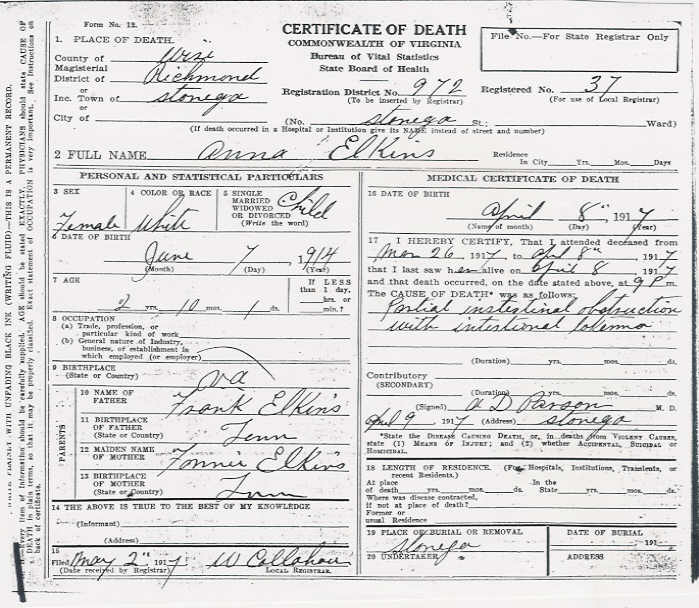 Form No. 12.
CERTIFICATE OF DEATH
COMMONWEALTH OF VIRGINIA
Bureau of Vital Statistics
State Board of Health
File No.—For State Registrar Only
1. PLACE OF DEATH.
County of Wise
Magisterial
District of Richmond
or
Inc. Town of Stonega
or
City of
Registration District No. 972
(To be inserted by Registrar)
Registered No. 37
(For use of Local Registrar)
(No. Stonega St.; Ward)
(If death occurred in a Hospital or Institution give its NAME instead of street and number)
2 FULL NAME Anna Elkins
Residence
In City Yrs. Mos. Days
PERSONAL AND STATISTICAL PARTICULARS
3 SEX
Female
4 COLOR OR RACE
White
5 SINGLE
MARRIED
WIDOWED
OR DIVORCED
(Write the word)
Child
6 DATE OF BIRTH
June 7 1914
(Month) (Day) (Year)
7 AGE
2 yrs. 10 mos. 1 ds.
If LESS
than 1 day,
hrs. or
min.?
8 OCCUPATION
(a) Trade, profession, or
particular kind of work
(b) General nature of Industry,
business, or establishment in
which employed (or employer)
9 BIRTHPLACE
(State or Country)
Va
PARENTS
10 NAME OF
FATHER
Frank Elkins
11 BIRTHPLACE
OF FATHER
(State or Country)
Tenn
12 MAIDEN NAME
OF MOTHER
Fonnie Elkins
13 BIRTHPLACE
OF MOTHER
(State or Country)
Tenn
14 THE ABOVE IS TRUE TO THE BEST OF MY KNOWLEDGE
(Informant)
(Address)
15
Filed May 2" 1917 W Callahan
(Date received by Registrar) LOCAL REGISTRAR.
MEDICAL CERTIFICATE OF DEATH
16 DATE OF BIRTH
April 8" 1917
(Name of month) (Day) (Year)
17 I HEREBY CERTIFY, That I attended deceased from
Mar 26 1917 to April 8" 1917
that I last saw her alive on April 8 1917
and that death occurred, on the date stated above, at 9 P m.
The CAUSE OF DEATH* was as follows:
Partial instestinal obstruction
with intestional
(Duration) yrs. mos. ds.
Contributory
(SECONDARY)
(Duration) yrs. mos. ds.
(Signed) A D Parson M. D.
April 9 1917 (Address) Stonega
*State the DISEASE CAUSING DEATH, or, in deaths from VIOLENT CAUSES,
state (1) MEANS OF INJURY; and (2) whether ACCIDENTAL, SUICIDAL or
HOMICIDAL.
18 LENGTH OF RESIDENCE. (For Hospitals, Institutions, Transients, or
recent Residents.)
At place In the
of death yrs. mos. ds. State yrs. mos. ds.
Where was disease contracted,
if not at place of death?
Former or
usual Residence
19 PLACE OF BURIAL OR REMOVAL
Stonega
DATE OF BURIAL
191
20 UNDERTAKER
ADDRESS